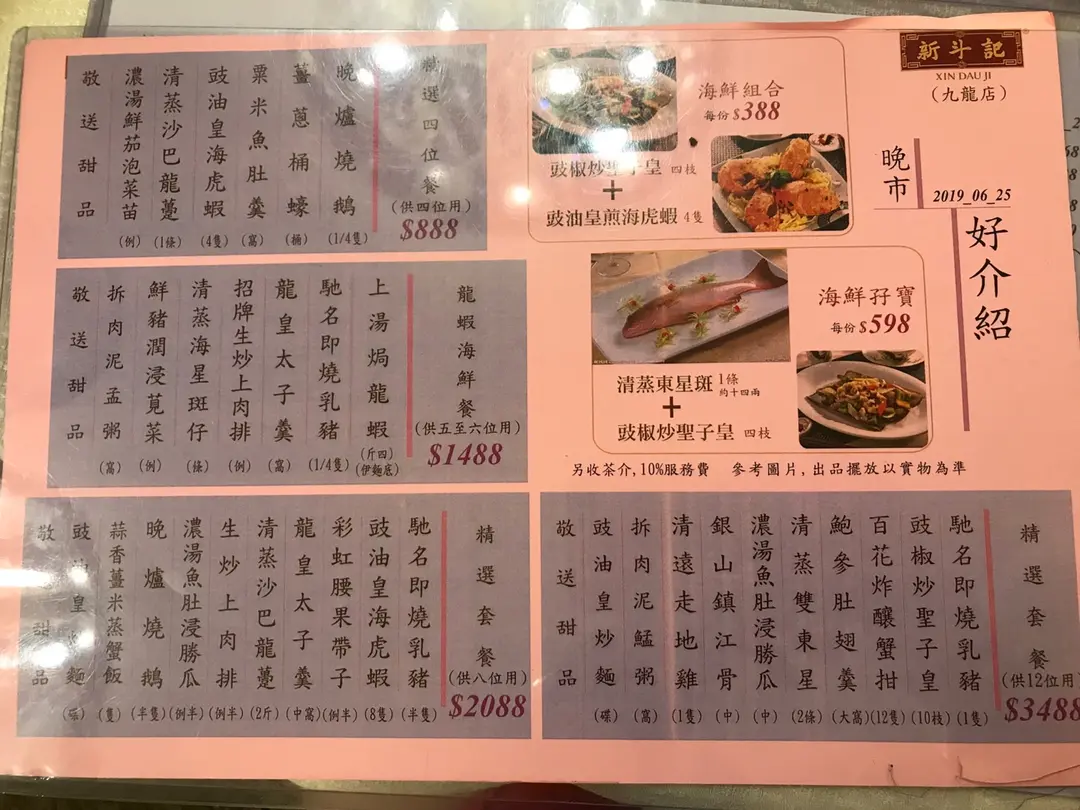 新斗記
XIN DAU JI
(九龍店)
晚市
2019_06_25
好介紹
海鮮組合
每份 $388
豉椒炒聖子皇 四枝
+
豉油皇煎海虎蝦 4隻
海鮮孖寶
每份 $598
清蒸東星斑 1條 約十四兩
+
豉椒炒聖子皇 四枝
另收茶介,10%服務費 參考圖片,出品擺放以實物為準
精選四位餐
(供四位用)
$888
晚爐燒鵝 (1/4隻)
薑蔥桶蠔 (桶)
粟米魚肚羹 (窩)
豉油皇海虎蝦 (4隻)
清蒸沙巴龍躉 (1條)
濃湯鮮茄泡菜苗 (例)
敬送甜品
龍蝦海鮮餐
(供五至六位用)
$1488
上湯焗龍蝦 (斤四) (伊麵底)
馳名即燒乳豬 (1/4隻)
龍皇太子羹 (窩)
招牌生炒上肉排 (例)
清蒸海星斑仔 (條)
鮮豬潤浸莧菜 (例)
拆肉泥孟粥 (窩)
敬送甜品
精選套餐
(供八位用)
$2088
馳名即燒乳豬 (半隻)
豉油皇海虎蝦 (8隻)
彩虹腰果帶子 (例半)
龍皇太子羹 (中窩)
清蒸沙巴龍躉 (2斤)
生炒上肉排 (例半)
濃湯魚肚浸勝瓜 (例半)
晚爐燒鵝 (半隻)
蒜香薑米蒸蟹飯 (隻)
豉油皇炒麵 (碟)
敬送甜品
精選套餐
(供12位用)
$3488
馳名即燒乳豬 (1隻)
豉椒炒聖子皇 (10枝)
百花炸釀蟹拑 (12隻)
鮑參肚翅羹 (大窩)
清蒸雙東星 (2條)
濃湯魚肚浸勝瓜 (中)
銀山鎮江骨 (中)
清遠走地雞 (1隻)
拆肉泥鯭粥 (窩)
豉油皇炒麵 (碟)
敬送甜品